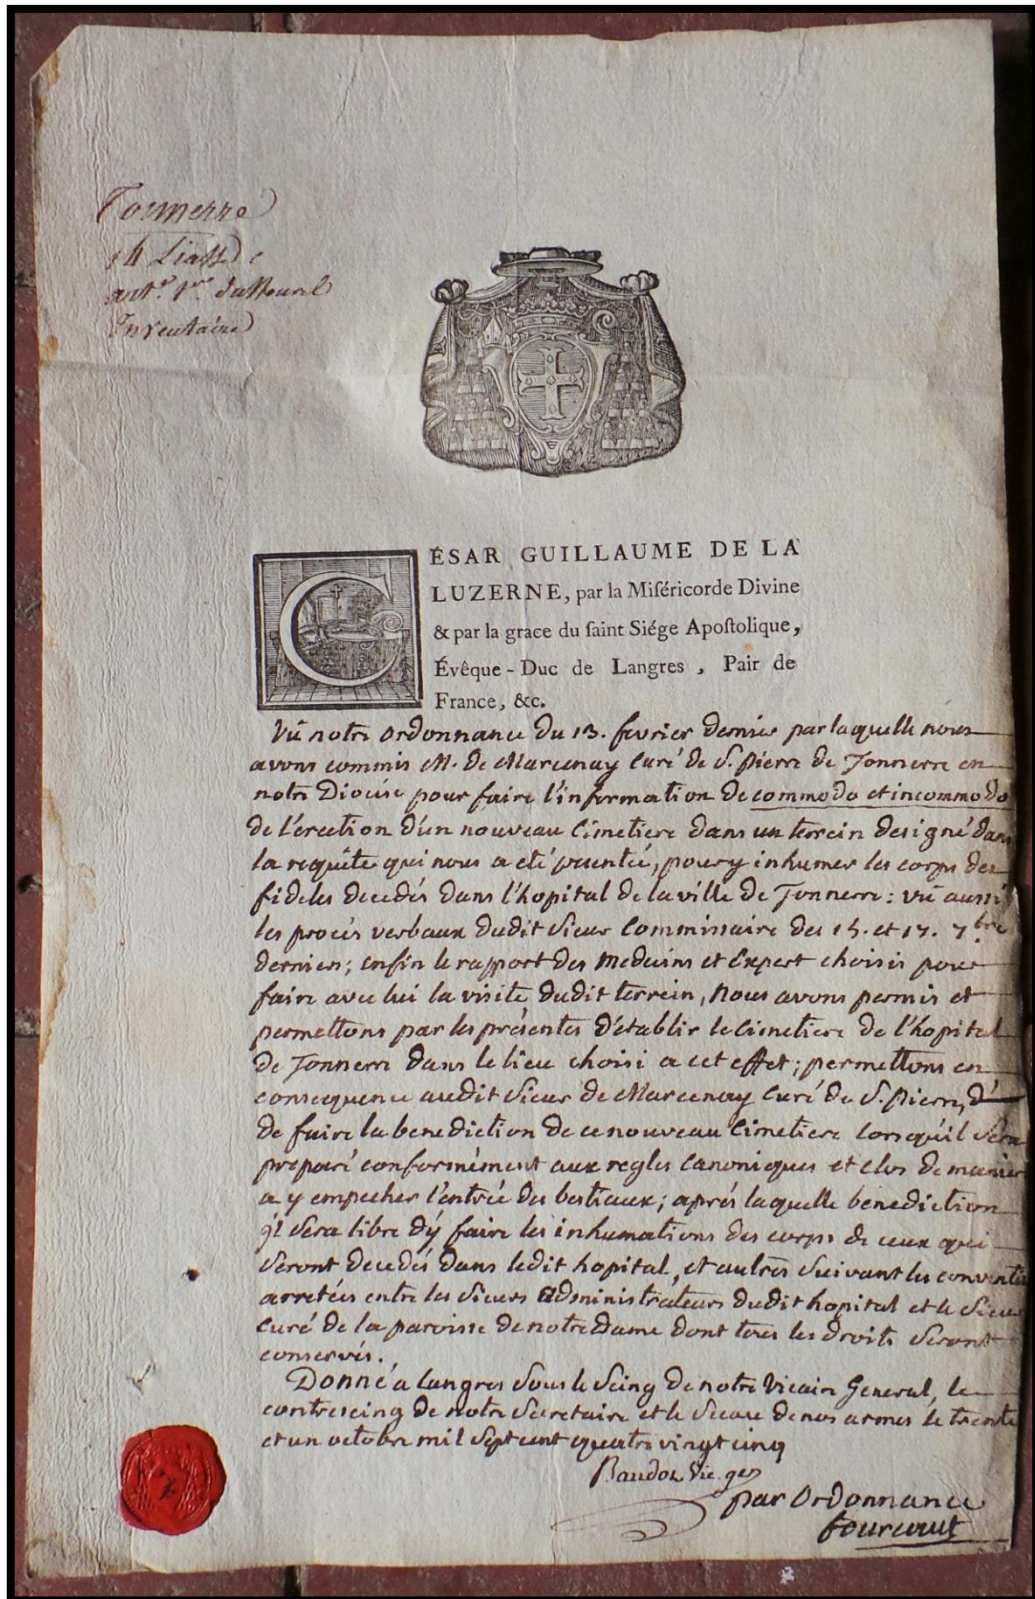 Tonnerre
14 Liasse
Inventaire
CÉSAR GUILLAUME DE LA
LUZERNE, par la Miſéricorde Divine
& par la grace du ſaint Siége Apoſtolique,
Évêque - Duc de Langres, Pair de
France, &c.
Vû notre ordonnance du 13. fevrier dernier par laquelle nous
avons commis M. de Marcenay Curé de S. Pierre de Tonnerre en
notre Diocése pour faire l'information de commodo et incommodo
de l'erection d'un nouveau Cimetiere dans un terrein designé dans
la requête qui nous a été présentée, pour y inhumer les corps des
fideles decedés dans l'hopital de la ville de Tonnerre : vû aussi
les procés verbaux dudit Sieur Commissaire des 15. et 17. 7bre
derniers ; enfin le rapport des Medecins et Expert choisis pour
faire avec lui la visite dudit terrein, Nous avons permis et
permettons par les présentes d'établir le Cimetiere de l'hopital
de Tonnerre dans le lieu choisi a cet effet ; permettons en
consequence audit Sieur de Marcenay Curé de S. Pierre, d'
de faire la benediction de ce nouveau Cimetiere lorsqu'il sera
preparé conformément aux regles Canoniques et clos de maniere
a y empecher l'entrée des bestiaux ; aprés laquelle benediction
il sera libre d'y faire les inhumations des corps de ceux qui
seront decedés dans ledit hopital, et autres suivant les
arretées entre les Sieurs administrateurs dudit hopital et le Sieur
Curé de la paroisse de notre Dame dont tous les droits seront
conservés.
Donné a Langres sous le seing de notre Vicaire General, le
contreseing de notre Secretaire et le Sceau de nos armes le trente
et un octobre mil sept cent quatre vingt cinq
Baudot Vic. gen
par Ordonnance